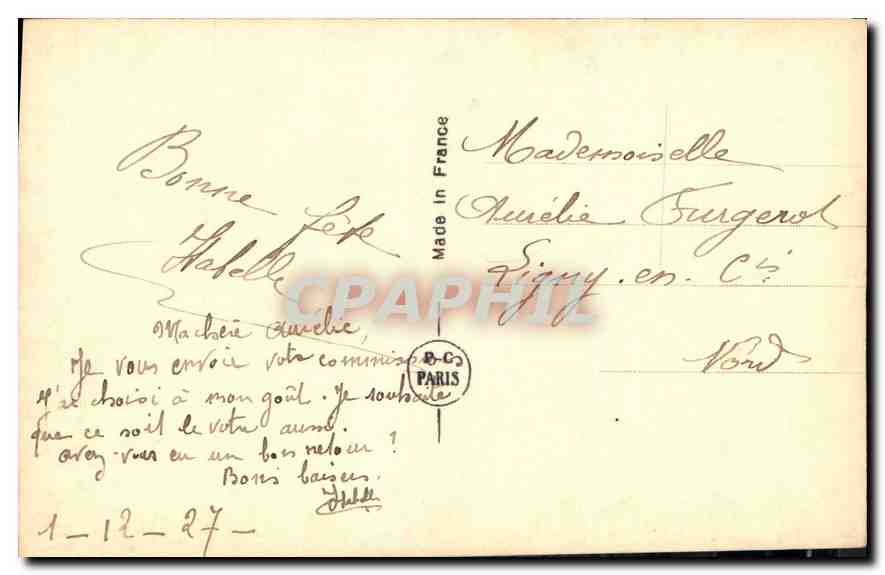 Bonne
fête
Isabelle
Ma chère Aurélie,
Je vous envoie votre commissions
j'ai choisi à mon goût. Je souhaite
que ce soit le votre aussi.
avez-vous eu un bon retour ?
Bons baisers.
Isabelle
1 - 12 - 27 -
Made in France
P.C.
PARIS
Mademoiselle
Aurélie Furgerot
Ligny-en-Cis
Nord
CPAPHIL